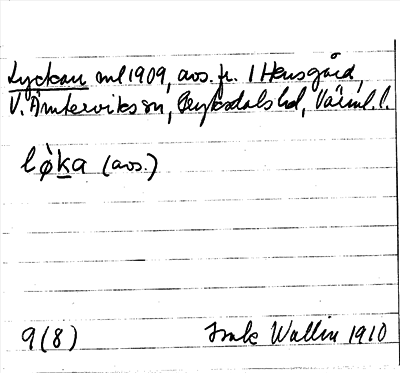 Lyckan ml 1909, avs. fr. 1 Hensgård,
V. Ämterviks sn, Fryksdals hd, Värml. l.
lø̀ka (avs.)
9(8) Wallin 1910